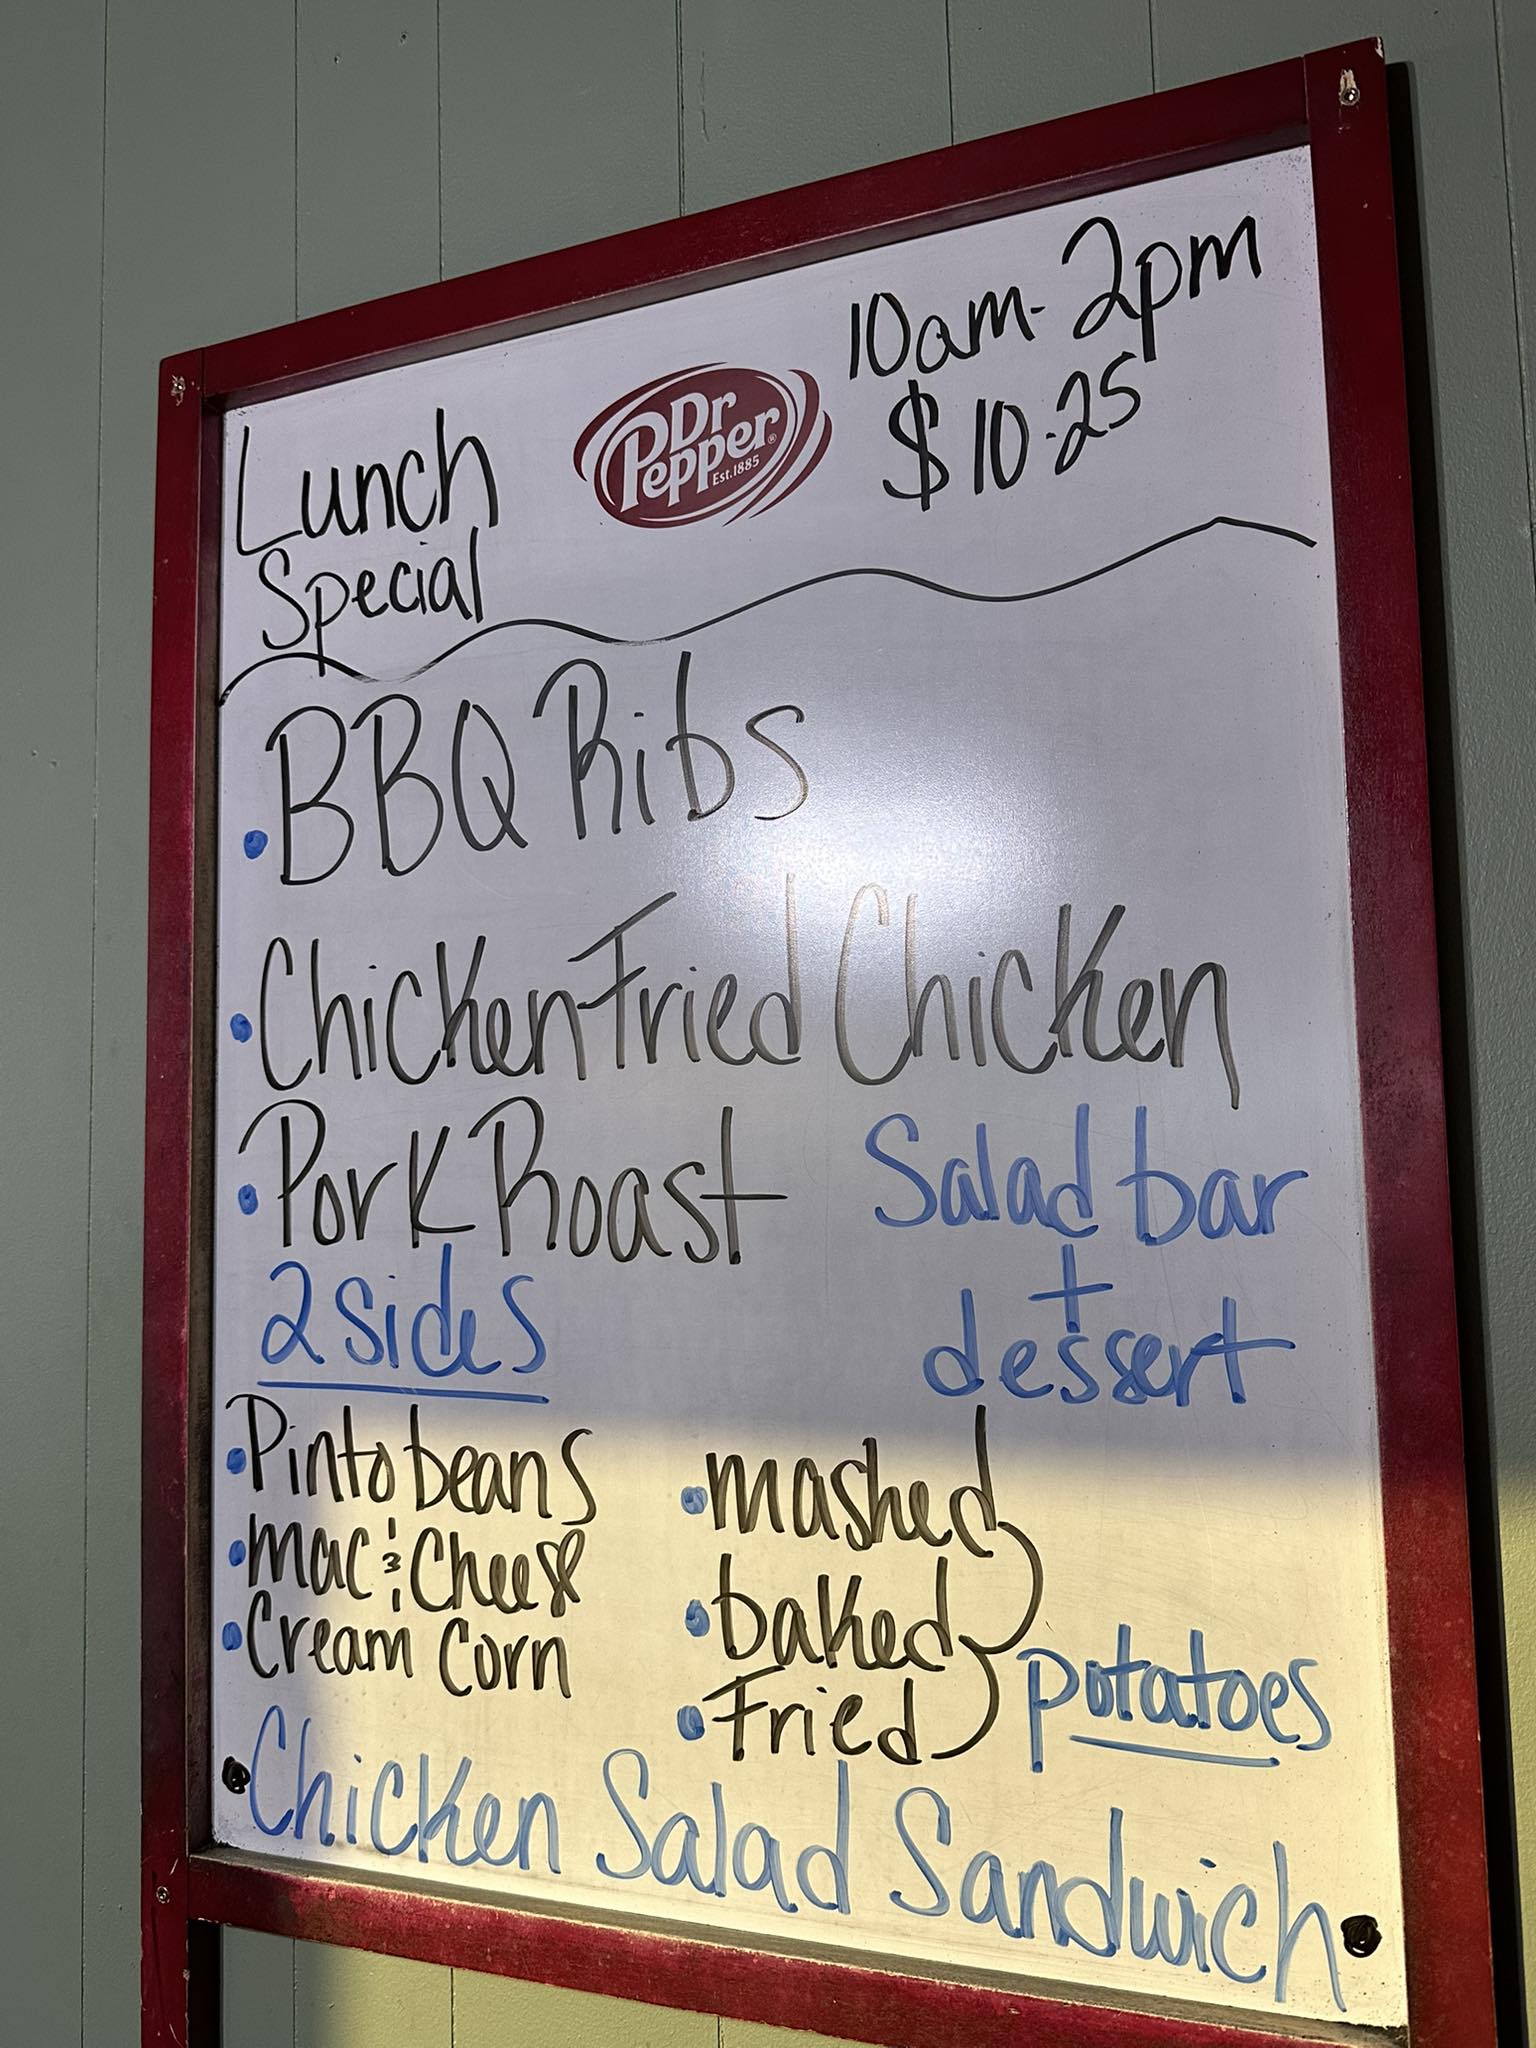 Lunch
Special
Dr
Pepper
Est.1885
10am-2pm
$10.25
BBQ Ribs
Chicken Fried Chicken
Pork Roast
Salad bar
+
dessert
2 sides
Pinto beans
mac & Cheese
Cream Corn
mashed
baked
Fried
potatoes
Chicken Salad Sandwich